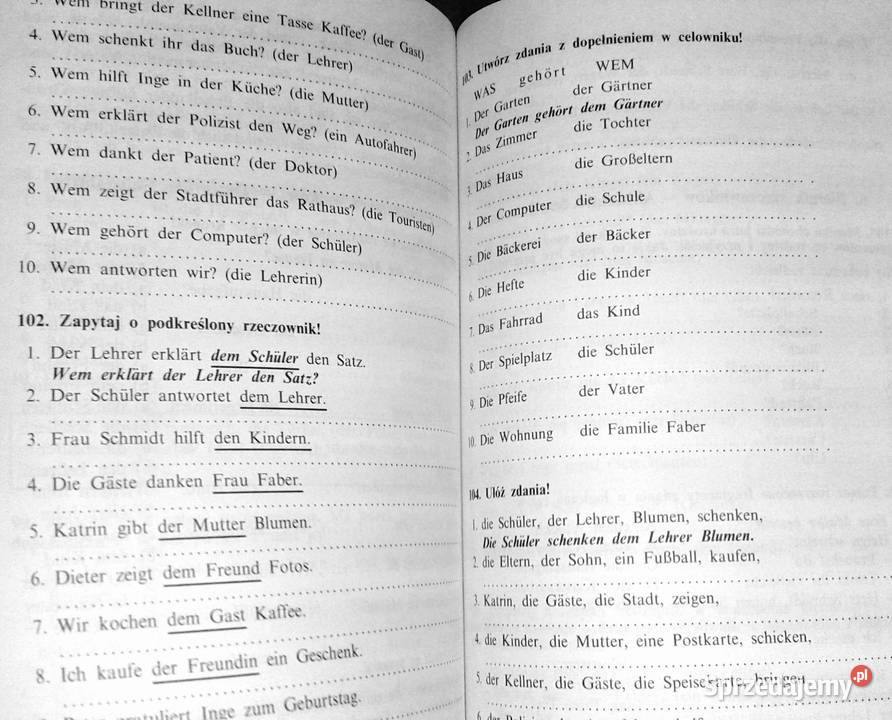 3. Wem bringt der Kellner eine Tasse Kaffee? (der Gast)
4. Wem schenkt ihr das Buch? (der Lehrer)
5. Wem hilft Inge in der Küche? (die Mutter)
6. Wem erklärt der Polizist den Weg? (ein Autofahrer)
7. Wem dankt der Patient? (der Doktor)
8. Wem zeigt der Stadtführer das Rathaus? (die Touristen)
9. Wem gehört der Computer? (der Schüler)
10. Wem antworten wir? (die Lehrerin)
102. Zapytaj o podkreślony rzeczownik!
1. Der Lehrer erklärt dem Schüler den Satz.
Wem erklärt der Lehrer den Satz?
2. Der Schüler antwortet dem Lehrer.
3. Frau Schmidt hilft den Kindern.
4. Die Gäste danken Frau Faber.
5. Katrin gibt der Mutter Blumen.
6. Dieter zeigt dem Freund Fotos.
7. Wir kochen dem Gast Kaffee.
8. Ich kaufe der Freundin ein Geschenk.
Inge zum Geburtstag.
103. Utwórz zdania z dopełnieniem w celowniku!
WAS gehört WEM
1. Der Garten der Gärtner
Der Garten gehört dem Gärtner
2. Das Zimmer die Tochter
3. Das Haus die Großeltern
4. Der Computer die Schule
5. Die Bäckerei der Bäcker
6. Die Hefte die Kinder
7. Das Fahrrad das Kind
8. Der Spielplatz die Schüler
9. Die Pfeife der Vater
10. Die Wohnung die Familie Faber
104. Ułóż zdania!
1. die Schüler, der Lehrer, Blumen, schenken,
Die Schüler schenken dem Lehrer Blumen.
2. die Eltern, der Sohn, ein Fußball, kaufen,
3. Katrin, die Gäste, die Stadt, zeigen,
4. die Kinder, die Mutter, eine Postkarte, schicken,
5. der Kellner, die Gäste, die Speisekarte, bringen
Sprzedajemy.pl